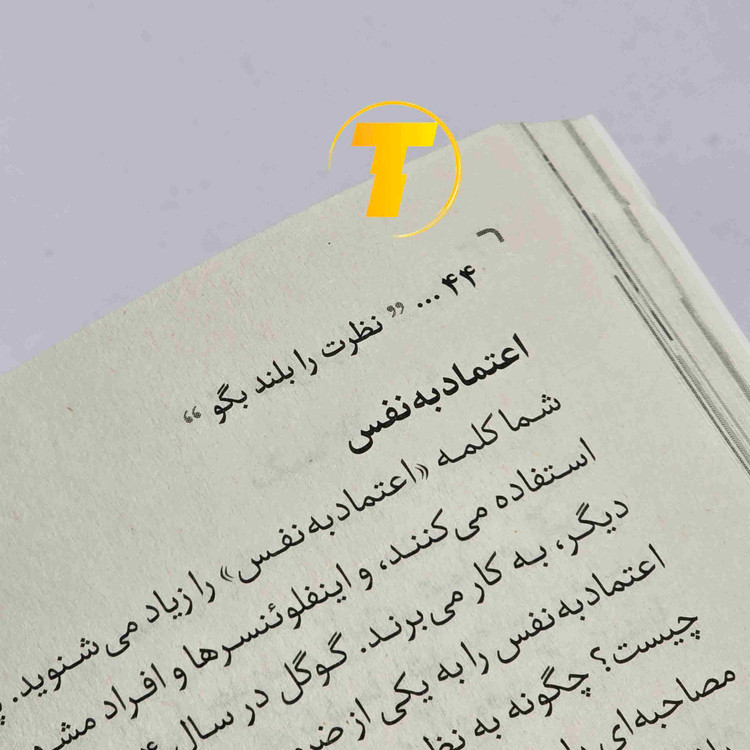 T
۴۴ ... ❞ نظرت را بلند بگو ❝
اعتمادبه‌نفس
شما کلمه «اعتمادبه‌نفس» را زیاد می‌شنوید.
استفاده می‌کنند، و اینفلوئنسرها و افراد
دیگر، به کار می‌برند. گوگل در سال
اعتمادبه‌نفس را به یکی از
چیست؟ چگونه به
مصاحبه‌ای